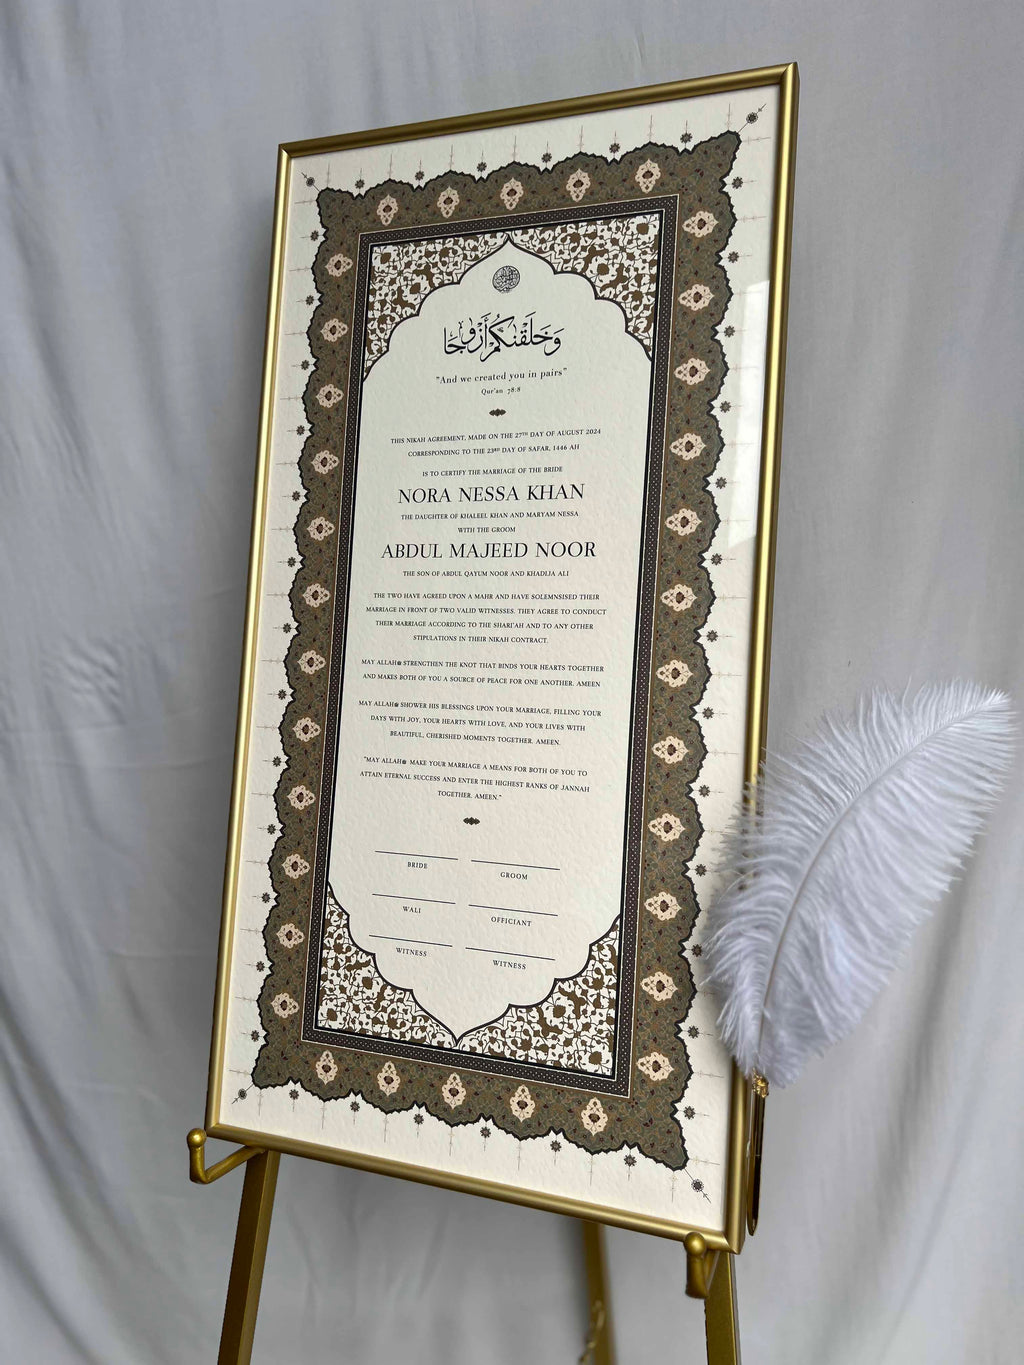 وَخَلَقْنَٰكُمْ أَزْوَٰجًا
"And we created you in pairs"
Qur'an 78:8
THIS NIKAH AGREEMENT, MADE ON THE 27TH DAY OF AUGUST 2024
CORRESPONDING TO THE 23RD DAY OF SAFAR, 1446 AH
IS TO CERTIFY THE MARRIAGE OF THE BRIDE
NORA NESSA KHAN
THE DAUGHTER OF KHALEEL KHAN AND MARYAM NESSA
WITH THE GROOM
ABDUL MAJEED NOOR
THE SON OF ABDUL QAYUM NOOR AND KHADIJA ALI
THE TWO HAVE AGREED UPON A MAHR AND HAVE SOLEMNSISED THEIR
MARRIAGE IN FRONT OF TWO VALID WITNESSES. THEY AGREE TO CONDUCT
THEIR MARRIAGE ACCORDING TO THE SHARI'AH AND TO ANY OTHER
STIPULATIONS IN THEIR NIKAH CONTRACT.
MAY ALLAH STRENGTHEN THE KNOT THAT BINDS YOUR HEARTS TOGETHER
AND MAKES BOTH OF YOU A SOURCE OF PEACE FOR ONE ANOTHER. AMEEN
MAY ALLAH SHOWER HIS BLESSINGS UPON YOUR MARRIAGE, FILLING YOUR
DAYS WITH JOY, YOUR HEARTS WITH LOVE, AND YOUR LIVES WITH
BEAUTIFUL, CHERISHED MOMENTS TOGETHER. AMEEN.
"MAY ALLAH MAKE YOUR MARRIAGE A MEANS FOR BOTH OF YOU TO
ATTAIN ETERNAL SUCCESS AND ENTER THE HIGHEST RANKS OF JANNAH
TOGETHER. AMEEN."
BRIDE GROOM
WALI OFFICIANT
WITNESS WITNESS